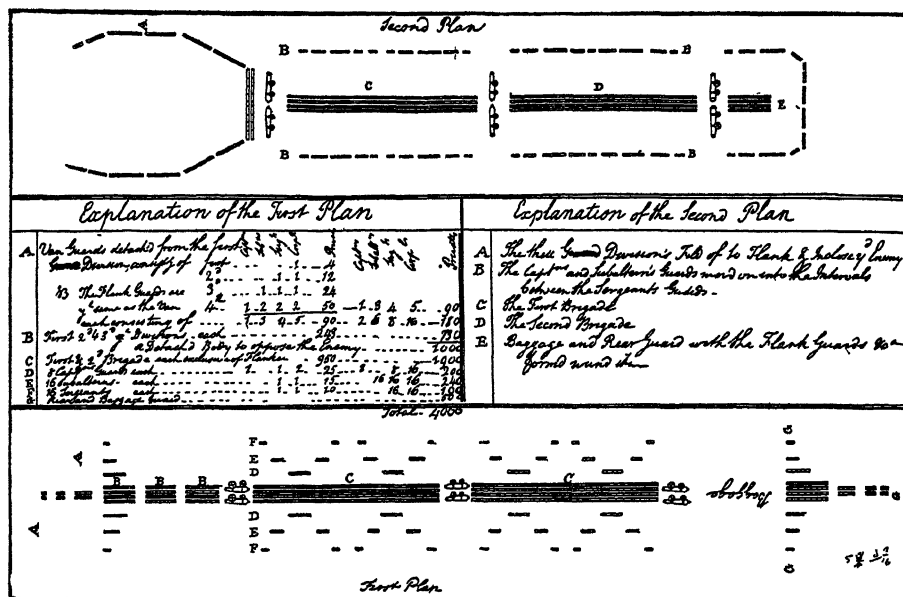 Second Plan
A
B B
C D E
B B
Explanation of the First Plan
A Van Guards detach'd from the first
Division, consisting of first 1 4
2d 1 1 12
The Flank Guards are 3 1 1 1 24
same as the Van 4 1 2 2 2 50 1 8 4 5 90
each consisting of 1 3 4 5 90 2 6 8 10 180
B First 2d & 3d Divisions, each
a Detach'd Body to oppose the Enemy 1000
C First & 2d Brigade each exclusive of Flankers 950 1900
D 8 Capt. Guards each 1 1 2 25 8 8 16 200
E 16 Subalterns each 1 1 15 16 16 16 240
F 16 Sergeants each 1 1 10 16 16 160
G Rear and Baggage Guard
Total 4000
Explanation of the Second Plan
A The three Divisions Fil'd of to Flank & Inclose ye Enemy
B The Captns and Subaltern's Guards mov'd on into the Intervals
between the Sergeants Guards
C The First Brigade
D The Second Brigade
E Baggage and Rear Guard with the Flank Guards
form'd round it
F G
A E
D
B B B C C Baggage G
D
A E
F G
First Plan